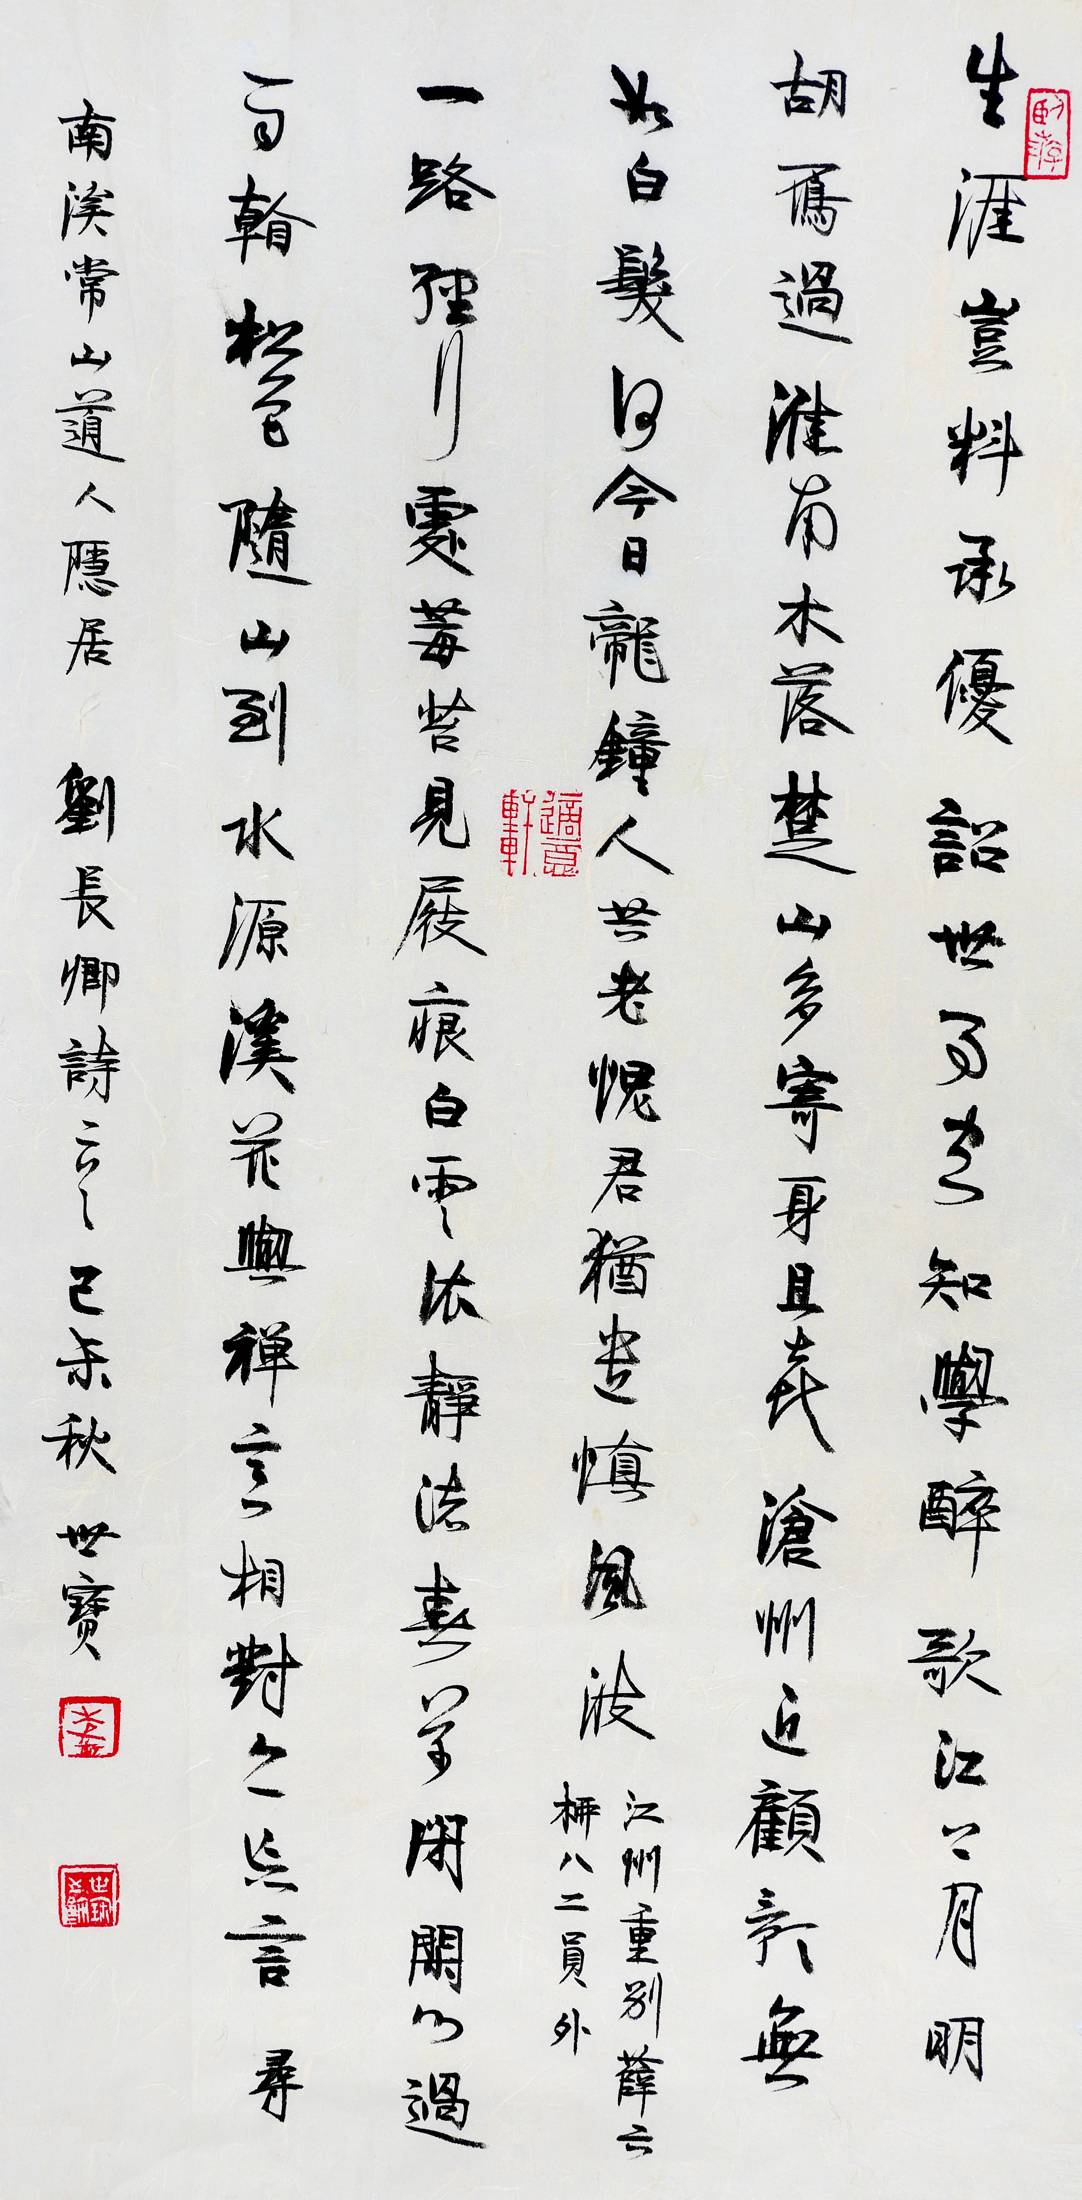 卧游
生涯豈料承優詔世事空知學醉歌江上月明
胡雁過淮南木落楚山多寄身且喜滄州近顧影無
如白髮何今日龍鐘人共老愧君猶遣慎風波
江州重別薛六
柳八二員外
適意軒
一路經行處莓苔見屐痕白雲依靜渚春草閉閑門過
雨看松色隨山到水源溪花與禪意相對亦忘言 尋
南溪常山道人隱居 劉長卿詩二首 己未秋 世寶